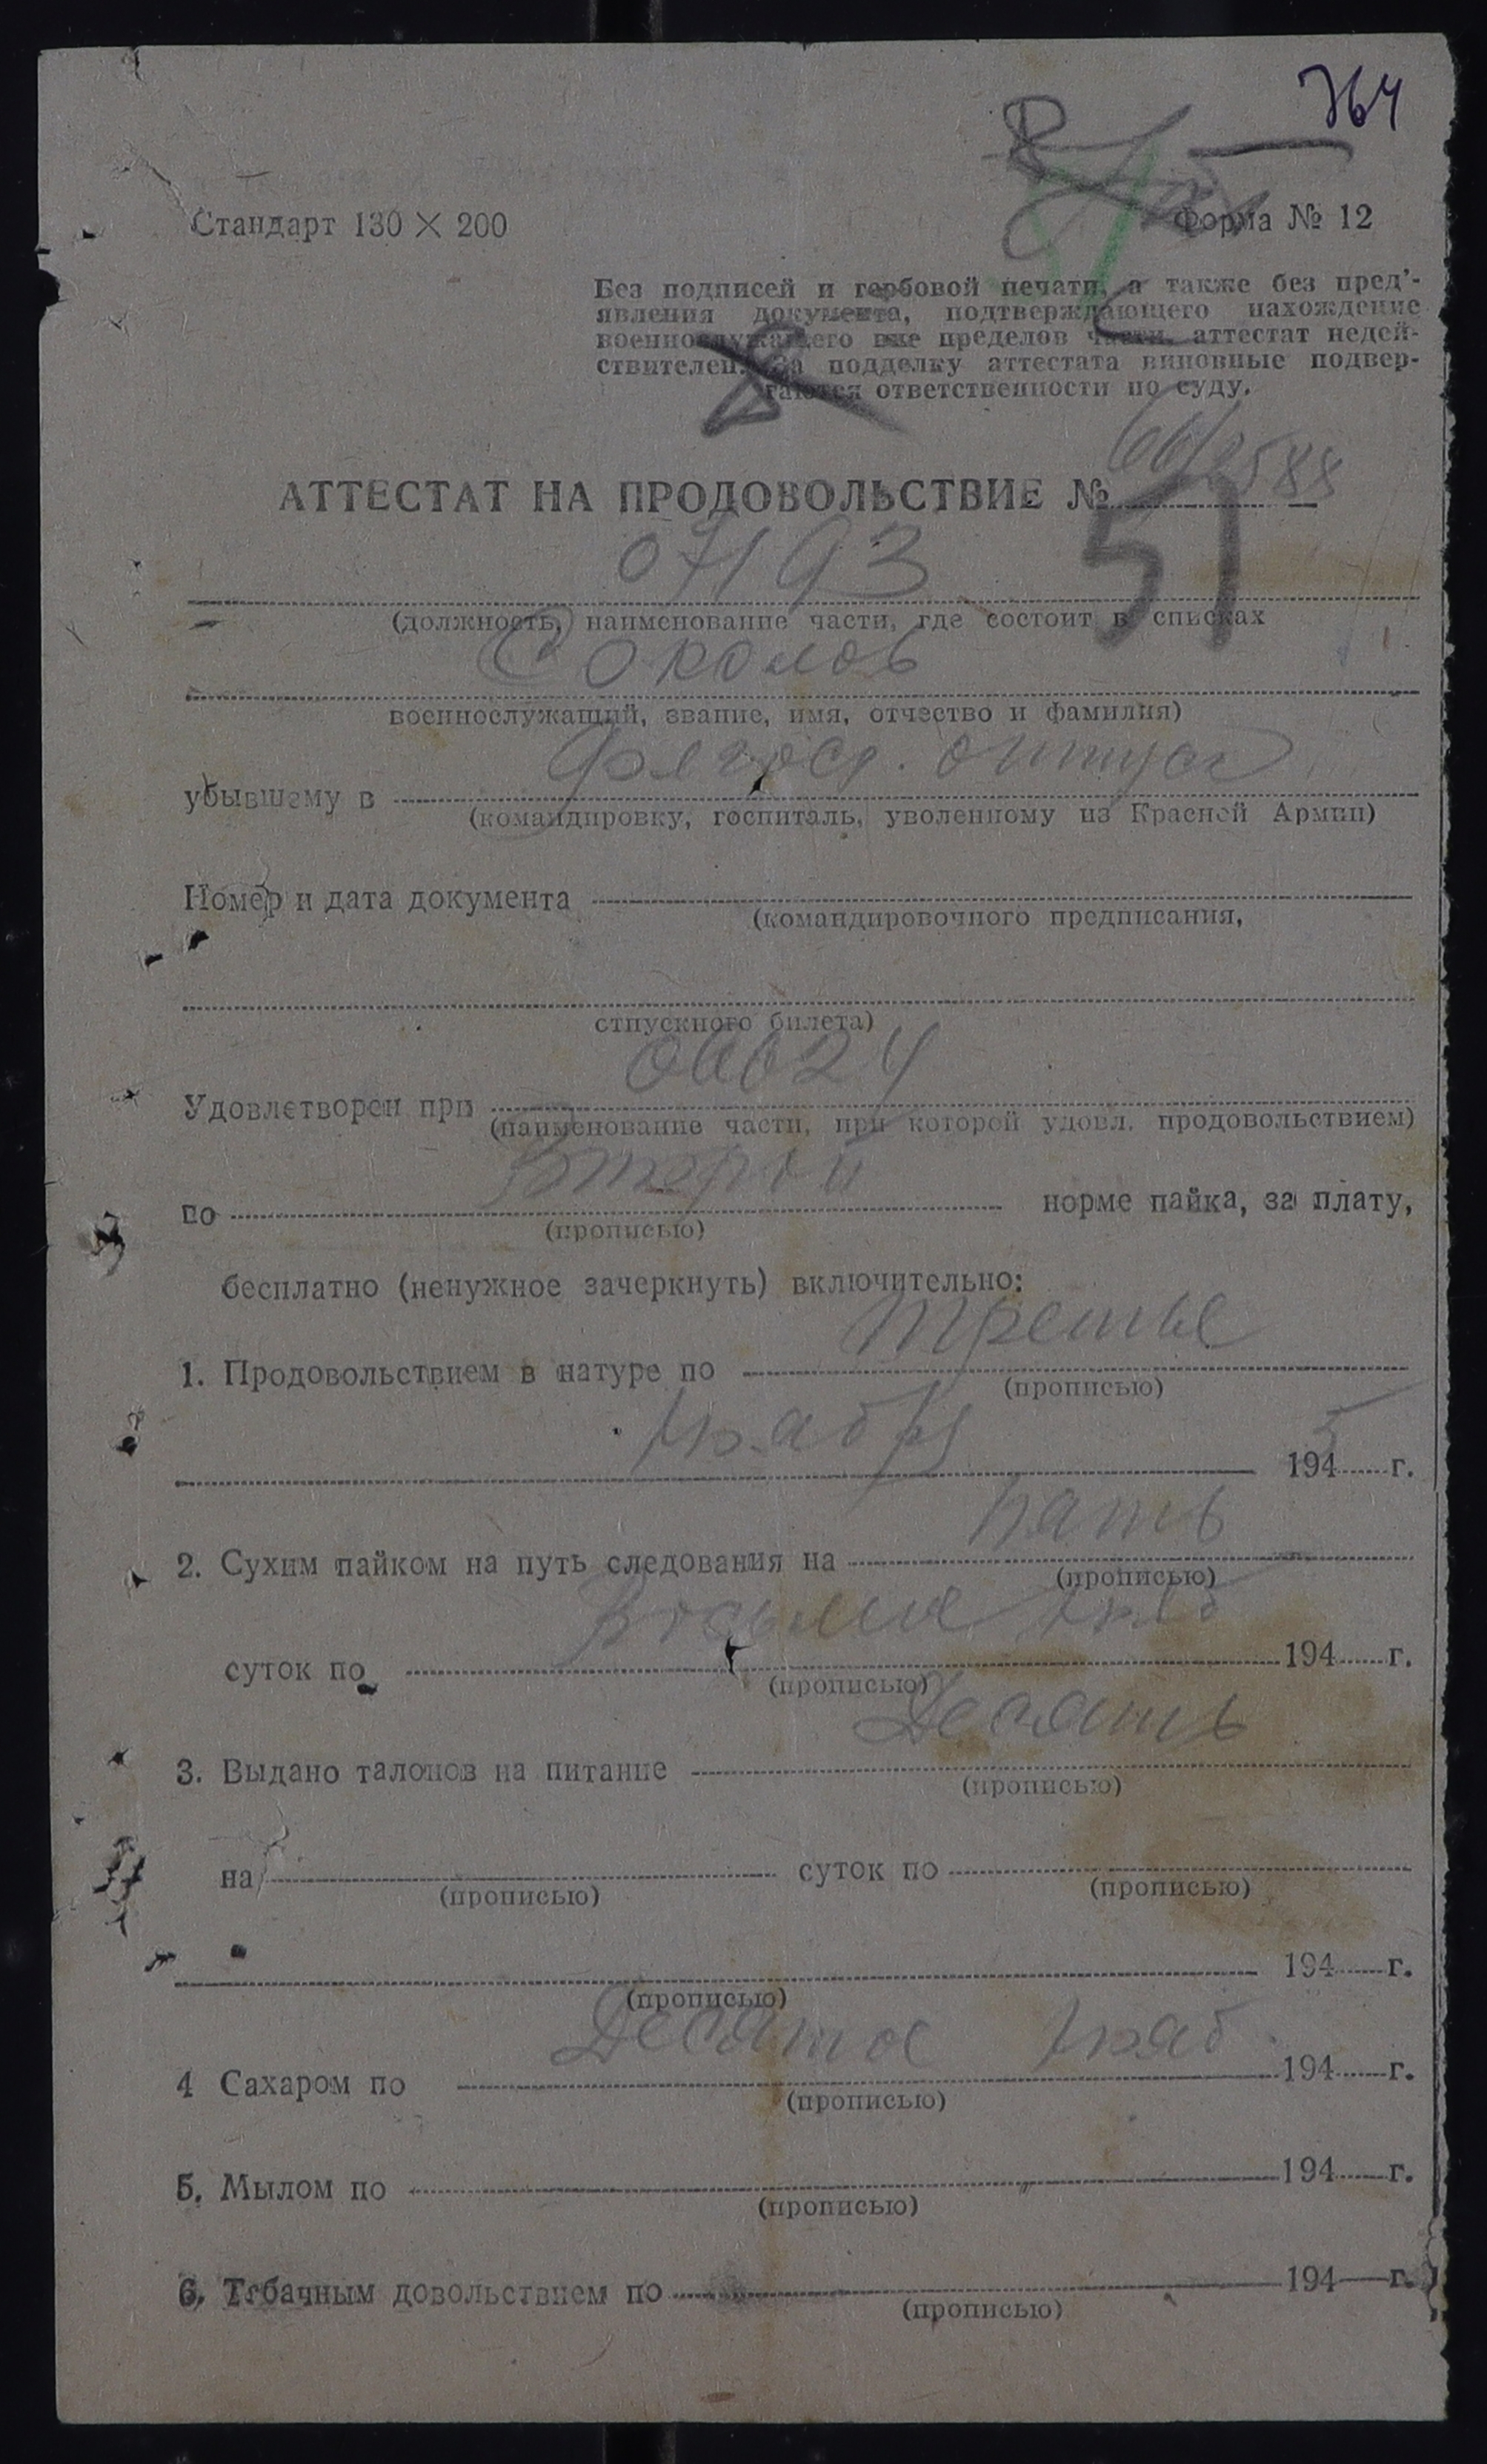 764
Стандарт 130 × 200
Форма № 12
Без подписей и гербовой печати, а также без пред'-
явления документа, подтверждающего нахождение
военнослужащего вне пределов части, аттестат недей-
ствителен. За подделку аттестата виновные подвер-
гаются ответственности по суду.
АТТЕСТАТ НА ПРОДОВОЛЬСТВИЕ №
51
07193
(должность, наименование части, где состоит в списках
Соколов
военнослужащий, звание, имя, отчество и фамилия)
убывшему в отпуск
(командировку, госпиталь, уволенному из Красной Армии)
Номер и дата документа
(командировочного предписания,
отпускного билета)
Удовлетворен при 06024
(наименование части, при которой удовл. продовольствием)
по второй норме пайка, за плату,
(прописью)
бесплатно (ненужное зачеркнуть) включительно:
1. Продовольствием в натуре по третье
(прописью)
ноября 1945 г.
2. Сухим пайком на путь следования на пять
(прописью)
суток по восьмое нояб 194 г.
(прописью)
3. Выдано талонов на питание Десять
(прописью)
на суток по
(прописью) (прописью)
194 г.
(прописью)
4 Сахаром по Десятое нояб. 194 г.
(прописью)
5. Мылом по 194 г.
(прописью)
6. Табачным довольствием по 194 г.
(прописью)